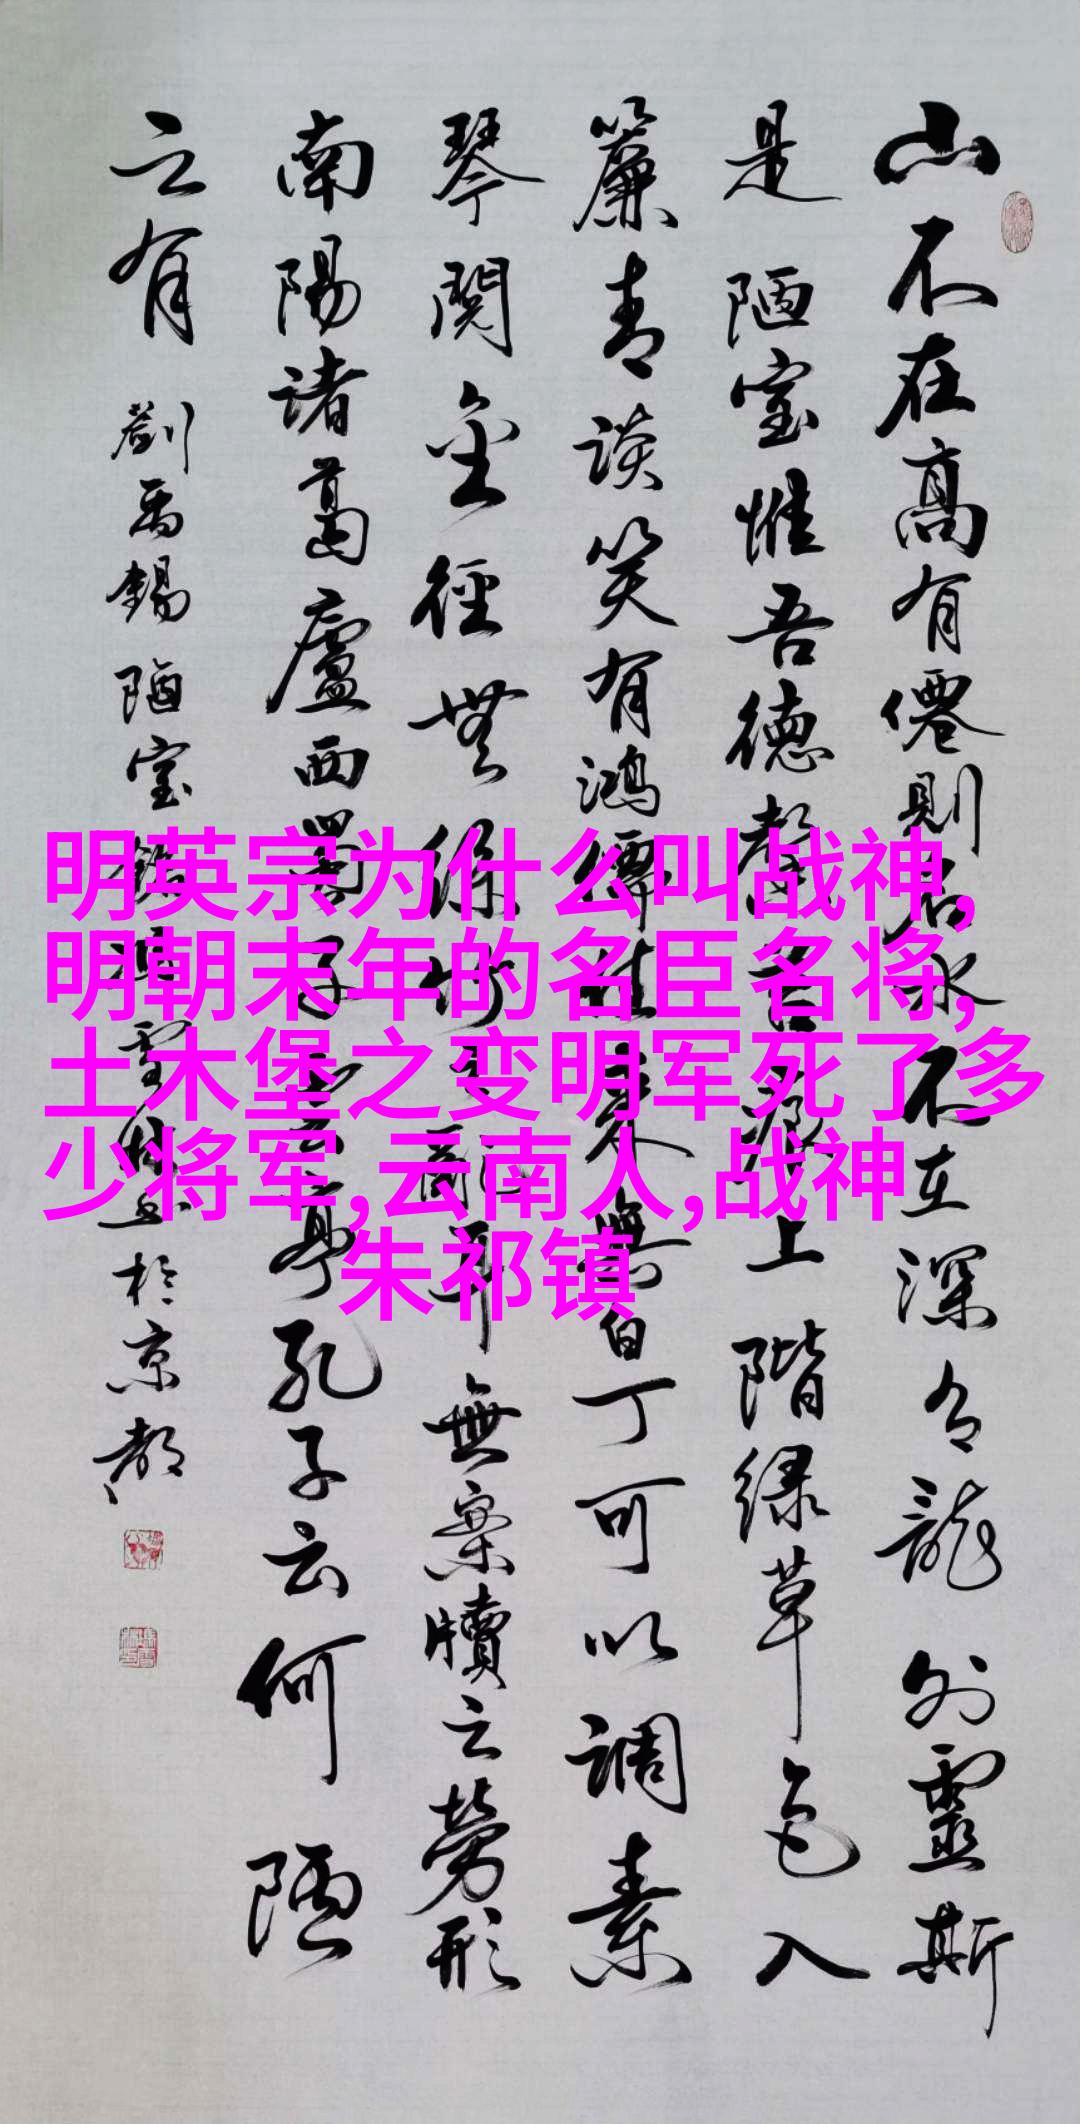 山不在高有僊則名水不在深有龍則靈斯
是陋室惟吾德馨苔痕上階绿草色入
簾青談笑有鴻儒往來無白丁可以調素
琴閱金經無絲竹之亂耳無案牘之勞形
南陽诸葛廬西蜀子雲亭孔子云何陋
之有 劉禹錫 陋室銘 於京都
明英宗为什么叫战神,
明朝末年的名臣名将,
土木堡之变明军死了多
少将军,云南人,战神
朱祁镇